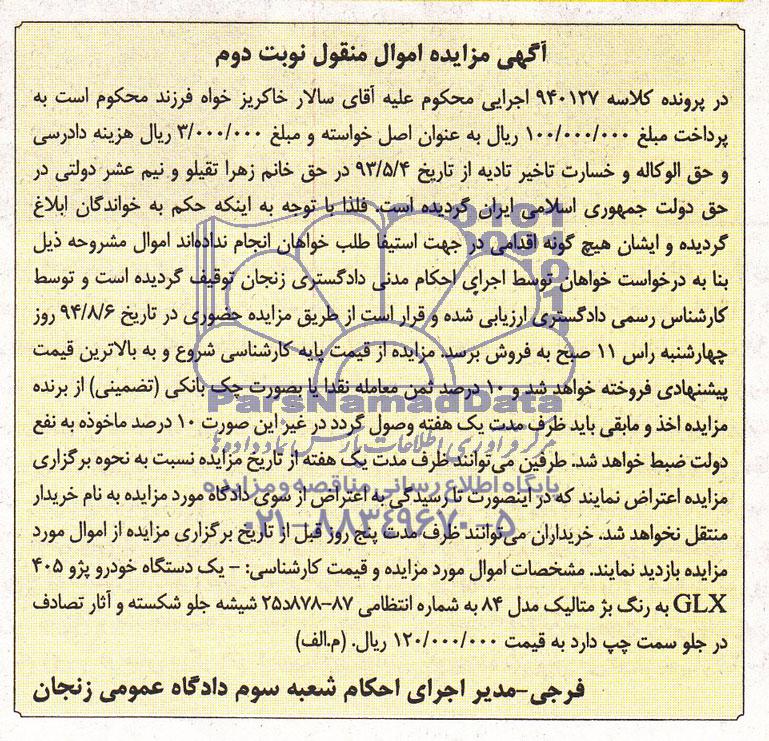 آگهی مزایده اموال منقول نوبت دوم
در پرونده کلاسه ۹۴۰۱۲۷ اجرایی محکوم علیه آقای سالار خاکریز خواه فرزند محکوم است به
پرداخت مبلغ ۱۰۰/۰۰۰/۰۰۰ ریال به عنوان اصل خواسته و مبلغ ۳/۰۰۰/۰۰۰ ریال هزینه دادرسی
و حق الوکاله و خسارت تاخیر تادیه از تاریخ ۹۳/۵/۴ در حق خانم زهرا تقیلو و نیم عشر دولتی در
حق دولت جمهوری اسلامی ایران گردیده است. فلذا با توجه به اینکه حکم به خواندگان ابلاغ
گردیده و ایشان هیچ گونه اقدامی در جهت استیفا طلب خواهان انجام نداده‌اند اموال مشروحه ذیل
بنا به درخواست خواهان توسط اجرای احکام مدنی دادگستری زنجان توقیف گردیده است و توسط
کارشناس رسمی دادگستری ارزیابی شده و قرار است از طریق مزایده حضوری در تاریخ ۹۴/۸/۶ روز
چهارشنبه راس ۱۱ صبح به فروش برسد. مزایده از قیمت پایه کارشناسی شروع و به بالاترین قیمت
پیشنهادی فروخته خواهد شد و ۱۰ درصد ثمن معامله نقدا یا بصورت چک بانکی (تضمینی) از برنده
مزایده اخذ و مابقی باید ظرف مدت یک هفته وصول گردد در غیر این صورت ۱۰ درصد ماخوذه به نفع
دولت ضبط خواهد شد. طرفین می‌توانند ظرف مدت یک هفته از تاریخ مزایده نسبت به نحوه برگزاری
مزایده اعتراض نمایند که در اینصورت تا رسیدگی به اعتراض از سوی دادگاه مورد مزایده به نام خریدار
منتقل نخواهد شد. خریداران می‌توانند ظرف مدت پنج روز قبل از تاریخ برگزاری مزایده از اموال مورد
مزایده بازدید نمایند. مشخصات اموال مورد مزایده و قیمت کارشناسی: - یک دستگاه خودرو پژو ۴۰۵
GLX به رنگ بژ متالیک مدل ۸۴ به شماره انتظامی ۸۷-۸۷۸د۲۵ شیشه جلو شکسته و آثار تصادف
در جلو سمت چپ دارد به قیمت ۱۲۰/۰۰۰/۰۰۰ ریال. (م.الف)
فرجی-مدیر اجرای احکام شعبه سوم دادگاه عمومی زنجان
ParsNamadData
مرکز فرآوری اطلاعات پارس نماد داده‌ها
پایگاه اطلاع رسانی مناقصه و مزایده
۰۲۱-۸۸۳۴۹۶۷۰-۵